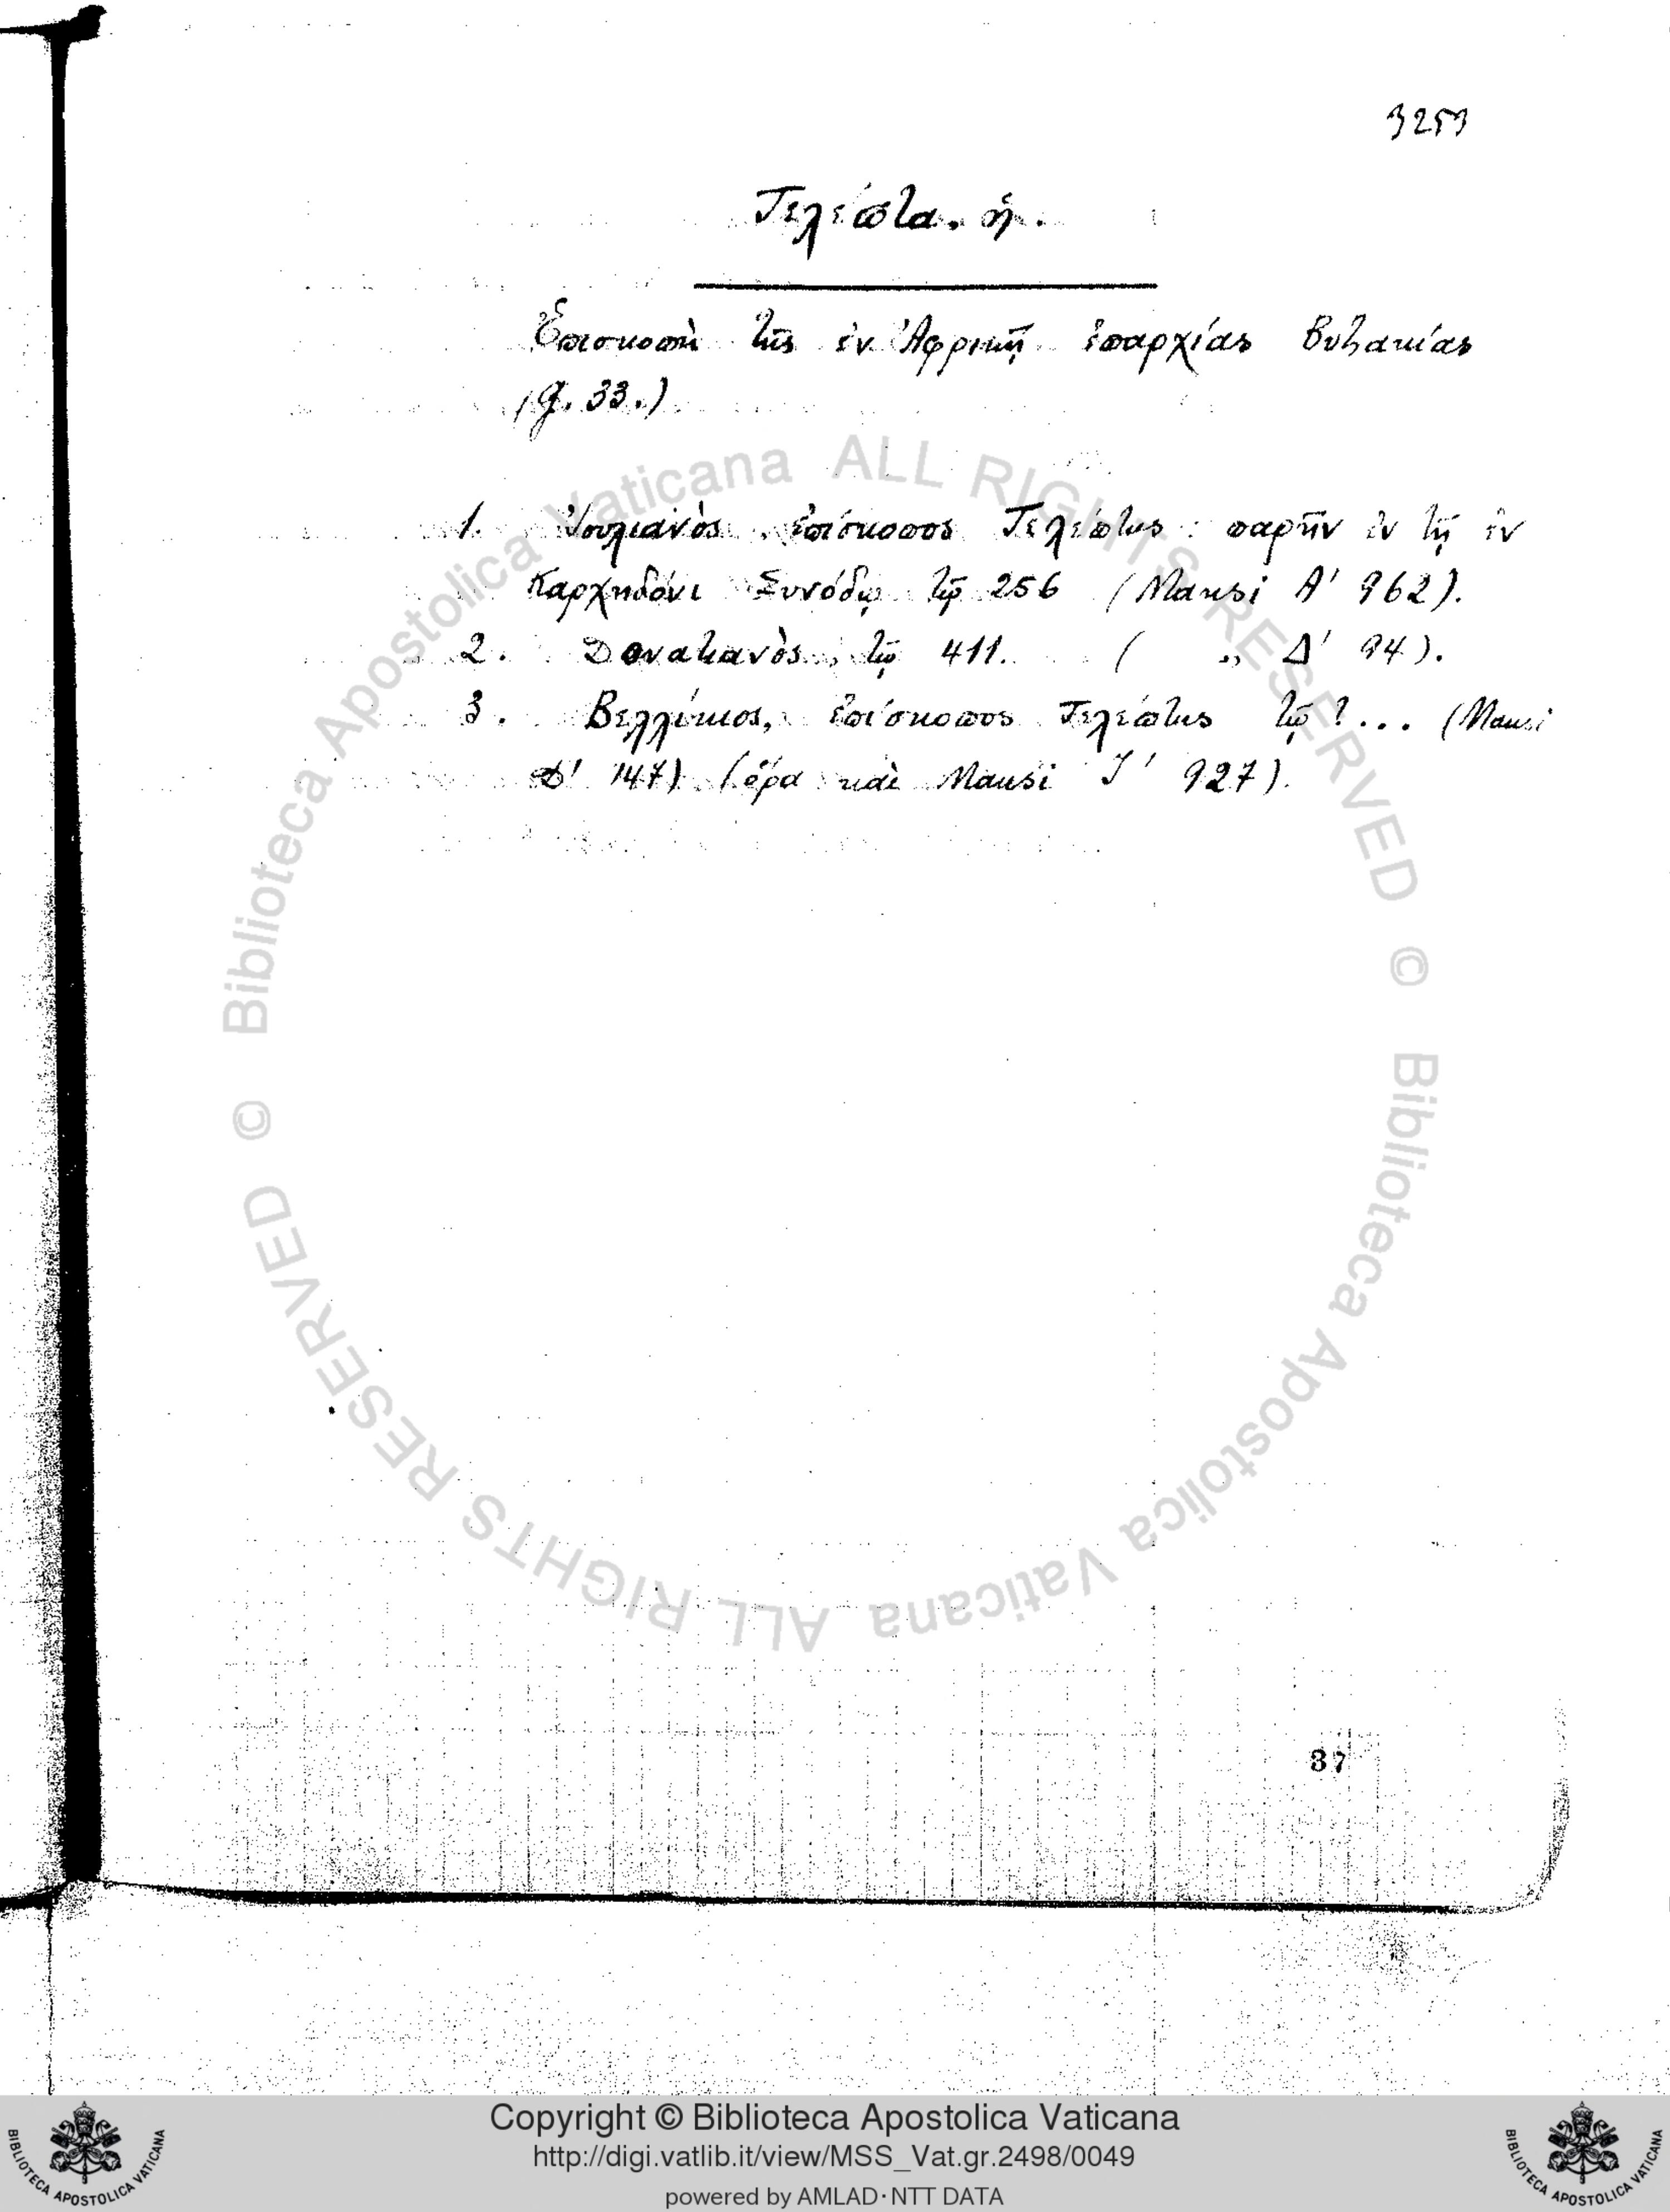 3253
Τελέπτα. ἡ.
Ἐπισκοπὴ τῆς ἐν Ἀφρικῇ ἐπαρχίας Βυζακίας
(G. 33.)
1. Ἰουλιανὸς ἐπίσκοπος Τελέπτης: παρῆν ἐν τῇ ἐν
Καρχηδόνι Συνόδῳ τῷ 256 (Mansi Α' 962).
2. Δονατιανὸς, τῷ 411. ( „ Δ' 94).
3. ἐπίσκοπος Τελέπτης τῷ ?... (Mansi
Δ' 147) (ὅρα καὶ Mansi 927).
87
© Biblioteca Apostolica Vaticana ALL RIGHTS RESERVED
© Biblioteca Apostolica Vaticana ALL RIGHTS RESERVED
Copyright © Biblioteca Apostolica Vaticana
http://digi.vatlib.it/view/MSS_Vat.gr.2498/0049
powered by AMLAD·NTT DATA
BIBLIOTECA APOSTOLICA VATICANA
BIBLIOTECA APOSTOLICA VATICANA